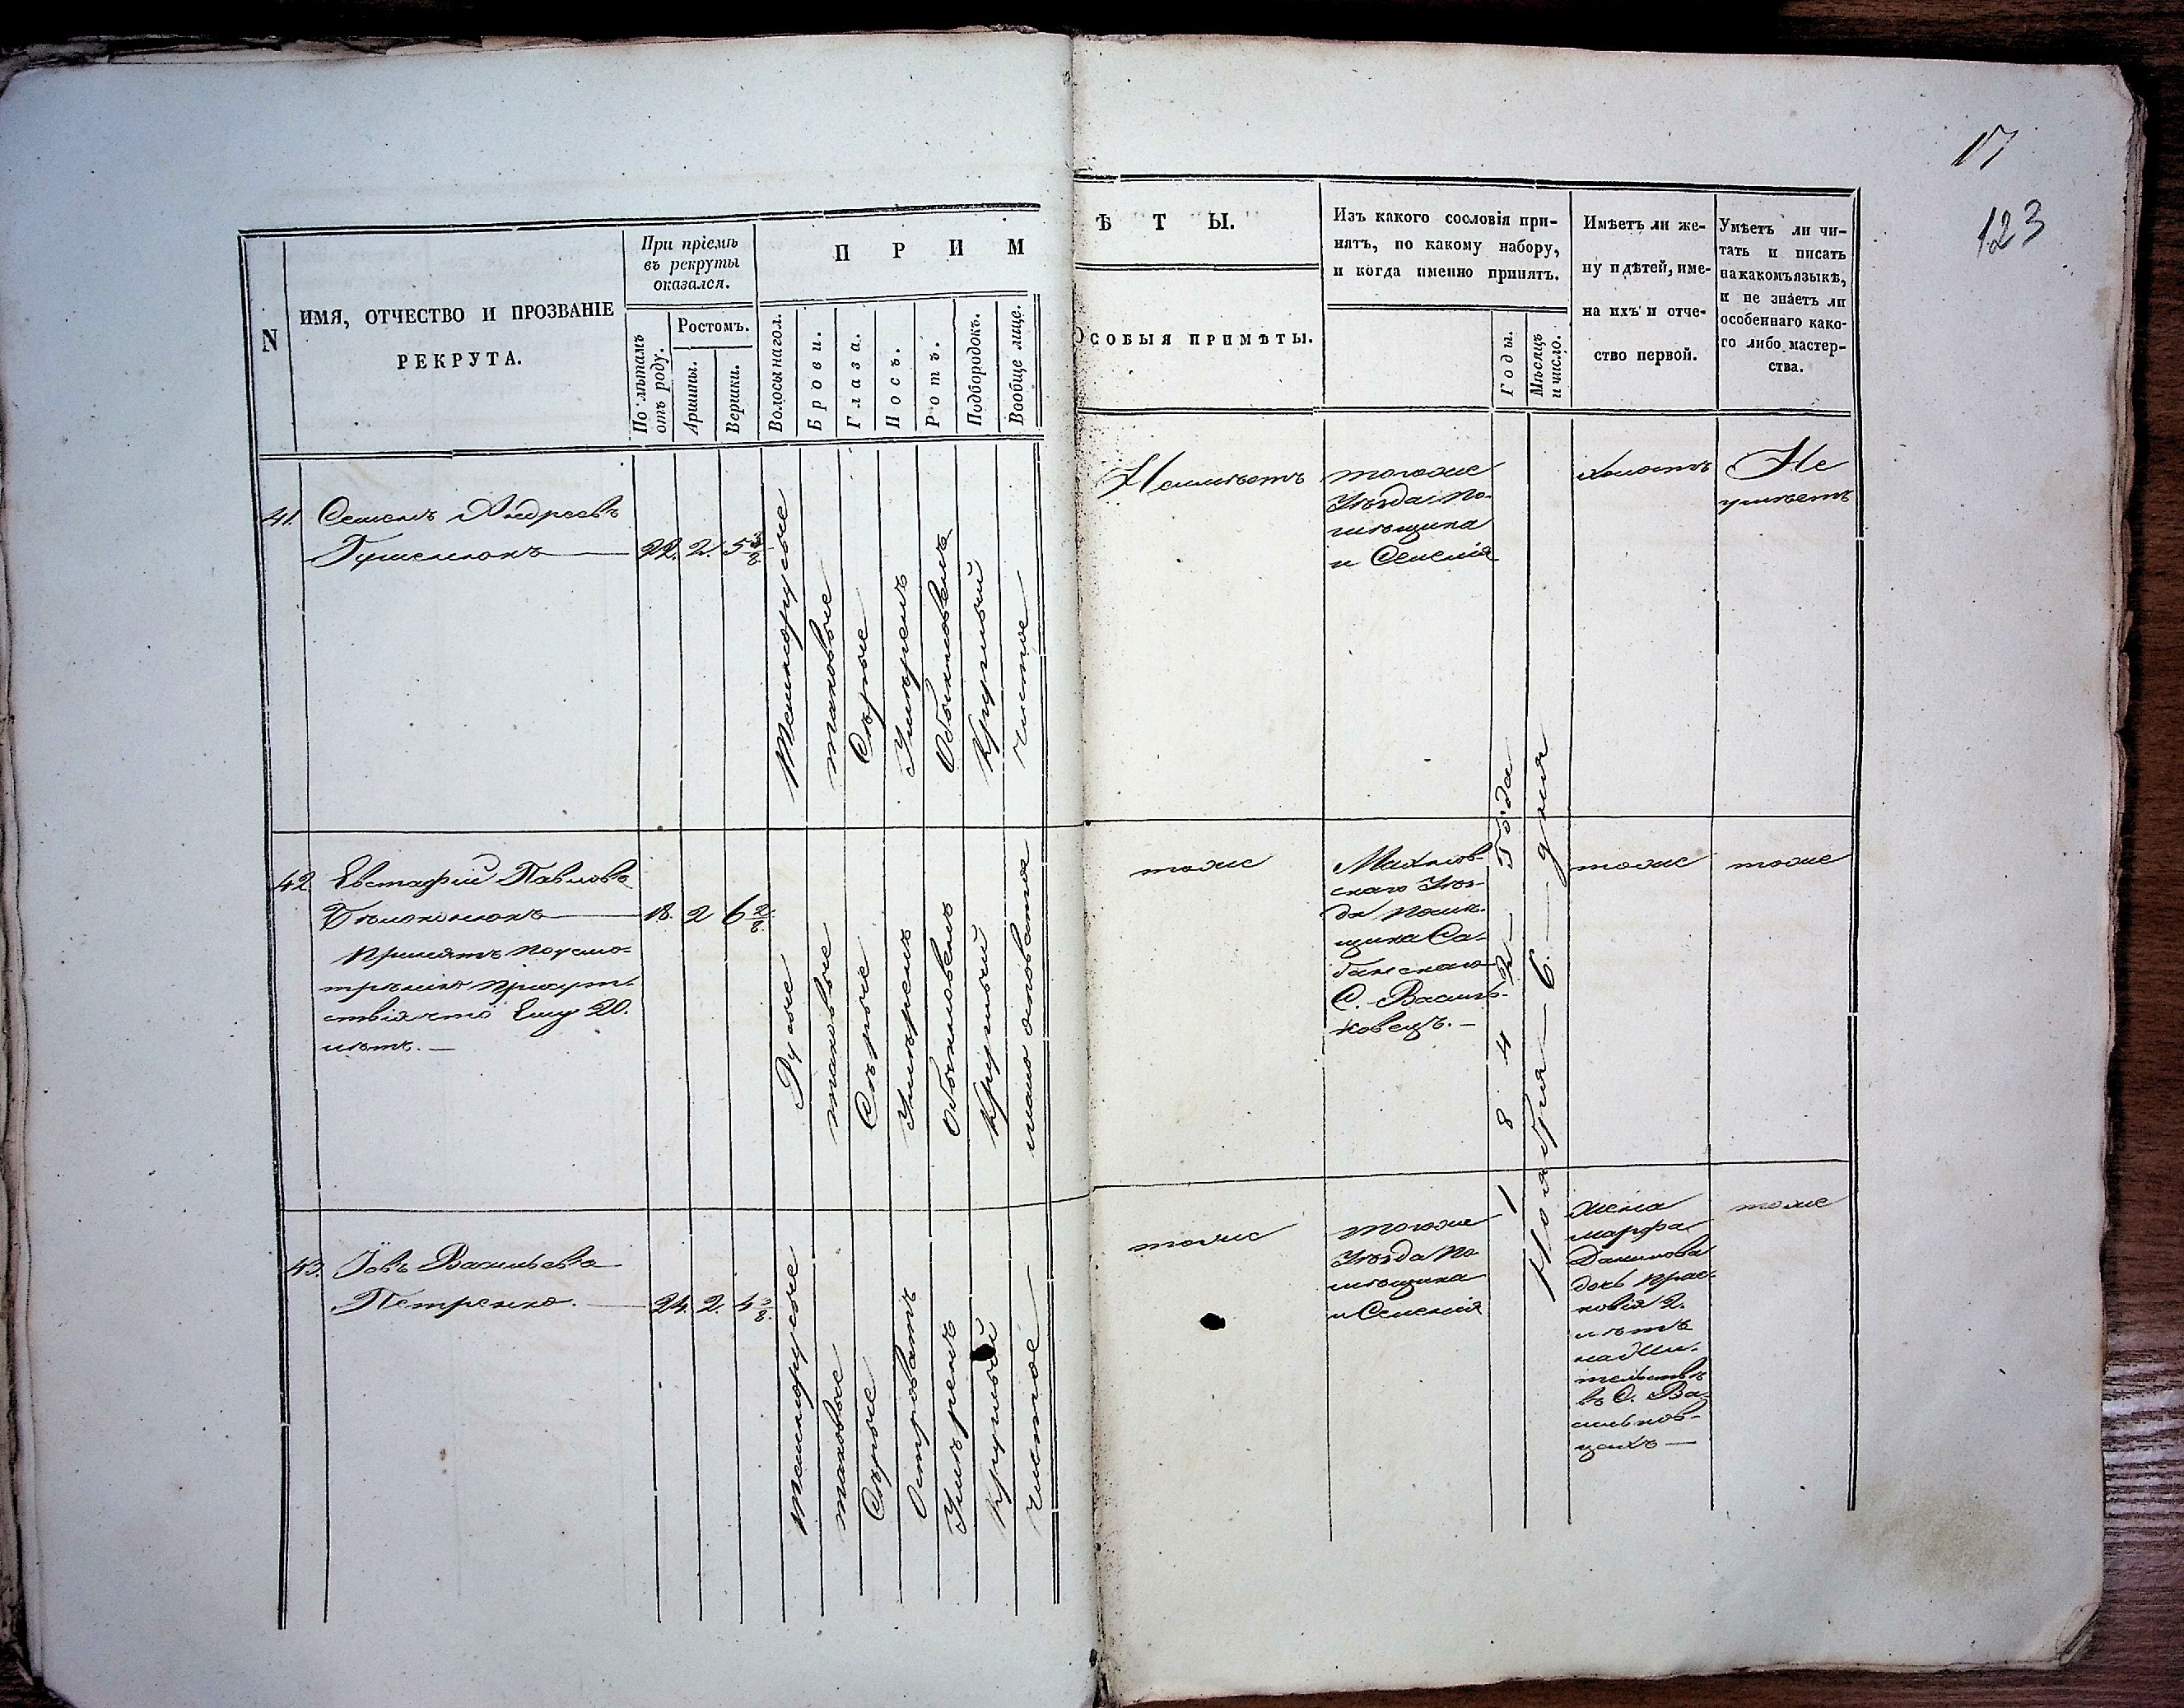 17
123
N
ИМЯ, ОТЧЕСТВО И ПРОЗВАНІЕ
РЕКРУТА.
При пріемѣ
въ рекруты
оказался.
По лѣтамъ
отъ роду.
Ростомъ.
Аршины.
Вершки.
П Р И М
Волосы на гол.
Брови.
Глаза.
Носъ.
Ротъ.
Подбородокъ.
Вообще лице.
Ѣ Т Ы.
Особыя примѣты.
Изъ какого сословія при-
нятъ, по какому набору,
и когда именно принятъ.
Годы.
Мѣсяцъ
и число.
Имѣетъ ли же-
ну и дѣтей, име-
на ихъ и отче-
ство первой.
Умѣетъ ли чи-
тать и писать
на какомъ языкѣ,
и не знаетъ ли
особеннаго како-
го либо мастер-
ства.
41. Семенъ Андреевъ
22. 2. 5 3/8
Темнорусые
таковые
Сѣрые
Умѣренъ
Обыкновенъ
Круглый
Чистое
Неимѣетъ
тогоже
Уѣзда по-
мѣщика
и Селенія
холостъ
Не
умѣетъ
42 Евстафій Павловъ
18. 2 6 2/8
Принятъ поусмо-
трѣнію присут-
ствія что Ему 20.
лѣтъ. —
Русые
таковые
Сѣрые
Умѣренъ
Обыкновенъ
Круглый
мало осповатое
тоже
Махнов-
скаго Уѣз-
да помѣ-
щика Са-
банскаго
С. Василь-
ковецъ. —
1842 — Года
Ноября — 6. — дня
тоже
тоже
43. Іовъ Васильевъ
Петренко. — 24. 2. 4 3/8
Темнорусые
таковые
Сѣрые
Островатъ
Умѣренъ
Круглый
Чистое
тоже
тогоже
Уѣзда по
мѣщика
и Селенія
жена
марфа
Данилова
дочь Прас-
ковія 2.
лѣтъ
на жи-
тельствѣ
въ С. Ва-
сильков-
цахъ —
тоже